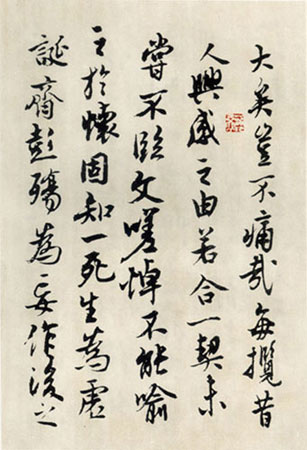 大矣豈不痛哉每攬昔
人興感之由若合一契未
嘗不臨文嗟悼不能喻
之於懷固知一死生為虛
誕齊彭殤為妄作後之